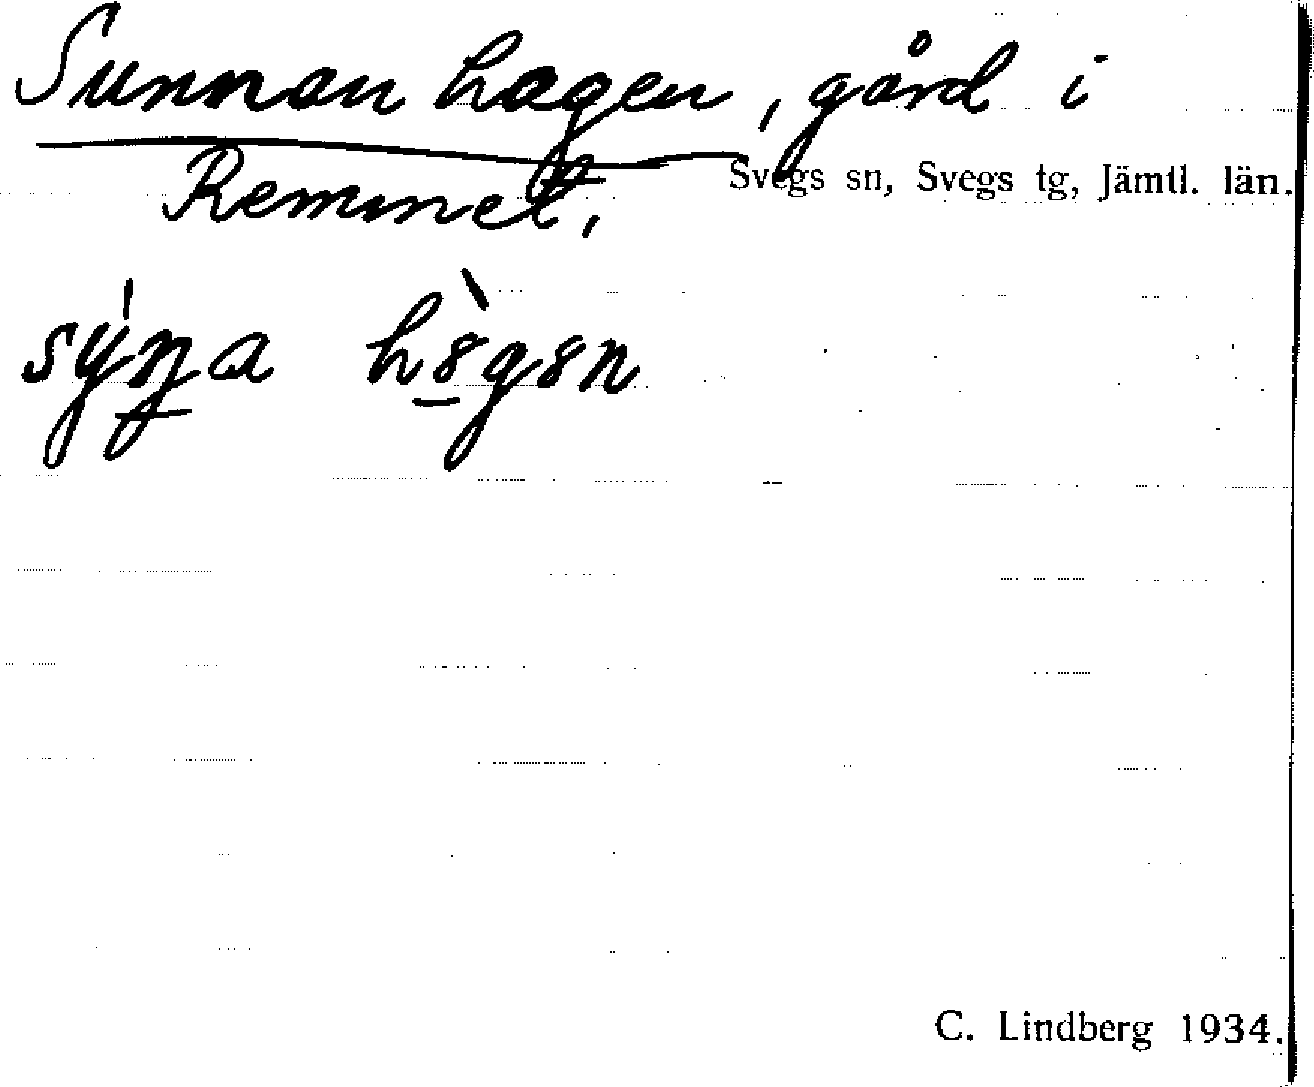 Sunnanhagen, gård i
Remmet.
Svegs sn, Svegs tg, Jämtl. län.
C. Lindberg 1934.